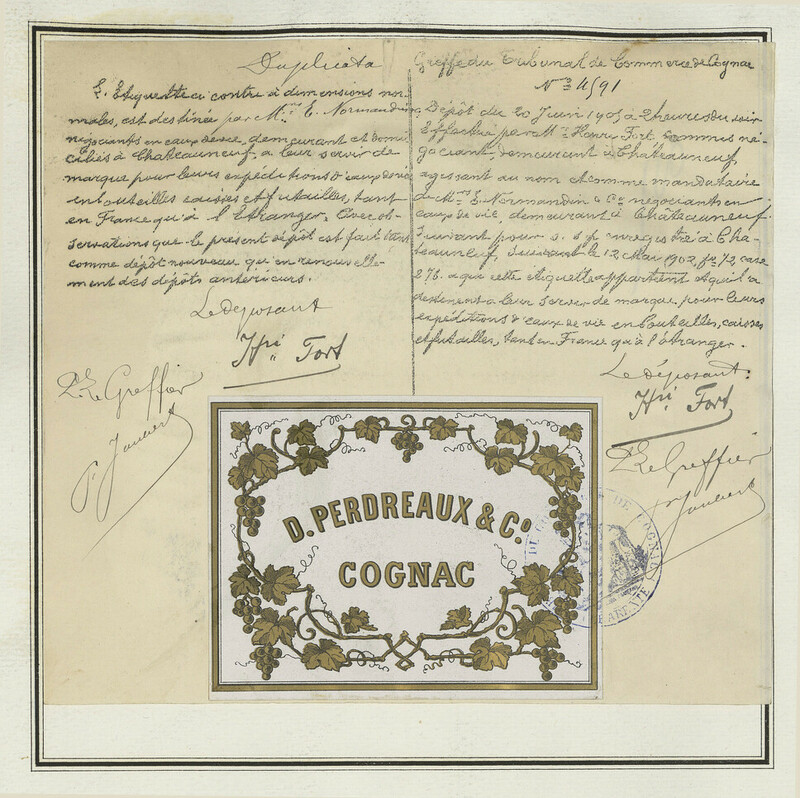 Duplicata
L'Etiquette ci contre à dimensions nor-
males, est destinée par M.rs E. Normandin
négociants en eaux devie, demeurant et domi
ciliés à Chateauneuf, a leur servir de
marque pour leurs expéditions d'eaux de vie
en bouteilles caisses et futailles, tant
en France qu'à l'étranger. Avec ob-
servations que le présent dépôt est fait tant
comme dépôt nouveau qu'en renouvelle-
ment des dépôts antérieurs.
Le déposant
Hri Fort
Le Greffier
Joubert
Greffe du Tribunal de Commerce de Cognac
No 4591
Dépôt du 20 Juin 1905 à 2 heures du soir
Effectué par M. Henri Fort, commis né-
gociant, demeurant à Châteauneuf,
agissant au nom et comme mandataire
de M.rs E. Normandin & Co négociants en
eaux de vie, demeurant à Châteauneuf.
Suivant pouvoir s. s. p. enregistré à Cha-
teauneuf, Suivant le 12 Mai 1902, fo 72, case
276. a que cette étiquette appartient et qu'il a
destinent a leur servir de marque pour leurs
expéditions d'eaux de vie en bouteilles, caisses
et futailles, tant en France qu'à l'étranger.
Le déposant:
Hri Fort
Le Greffier
Joubert
D. PERDREAUX & Co
COGNAC
DE COGNAC